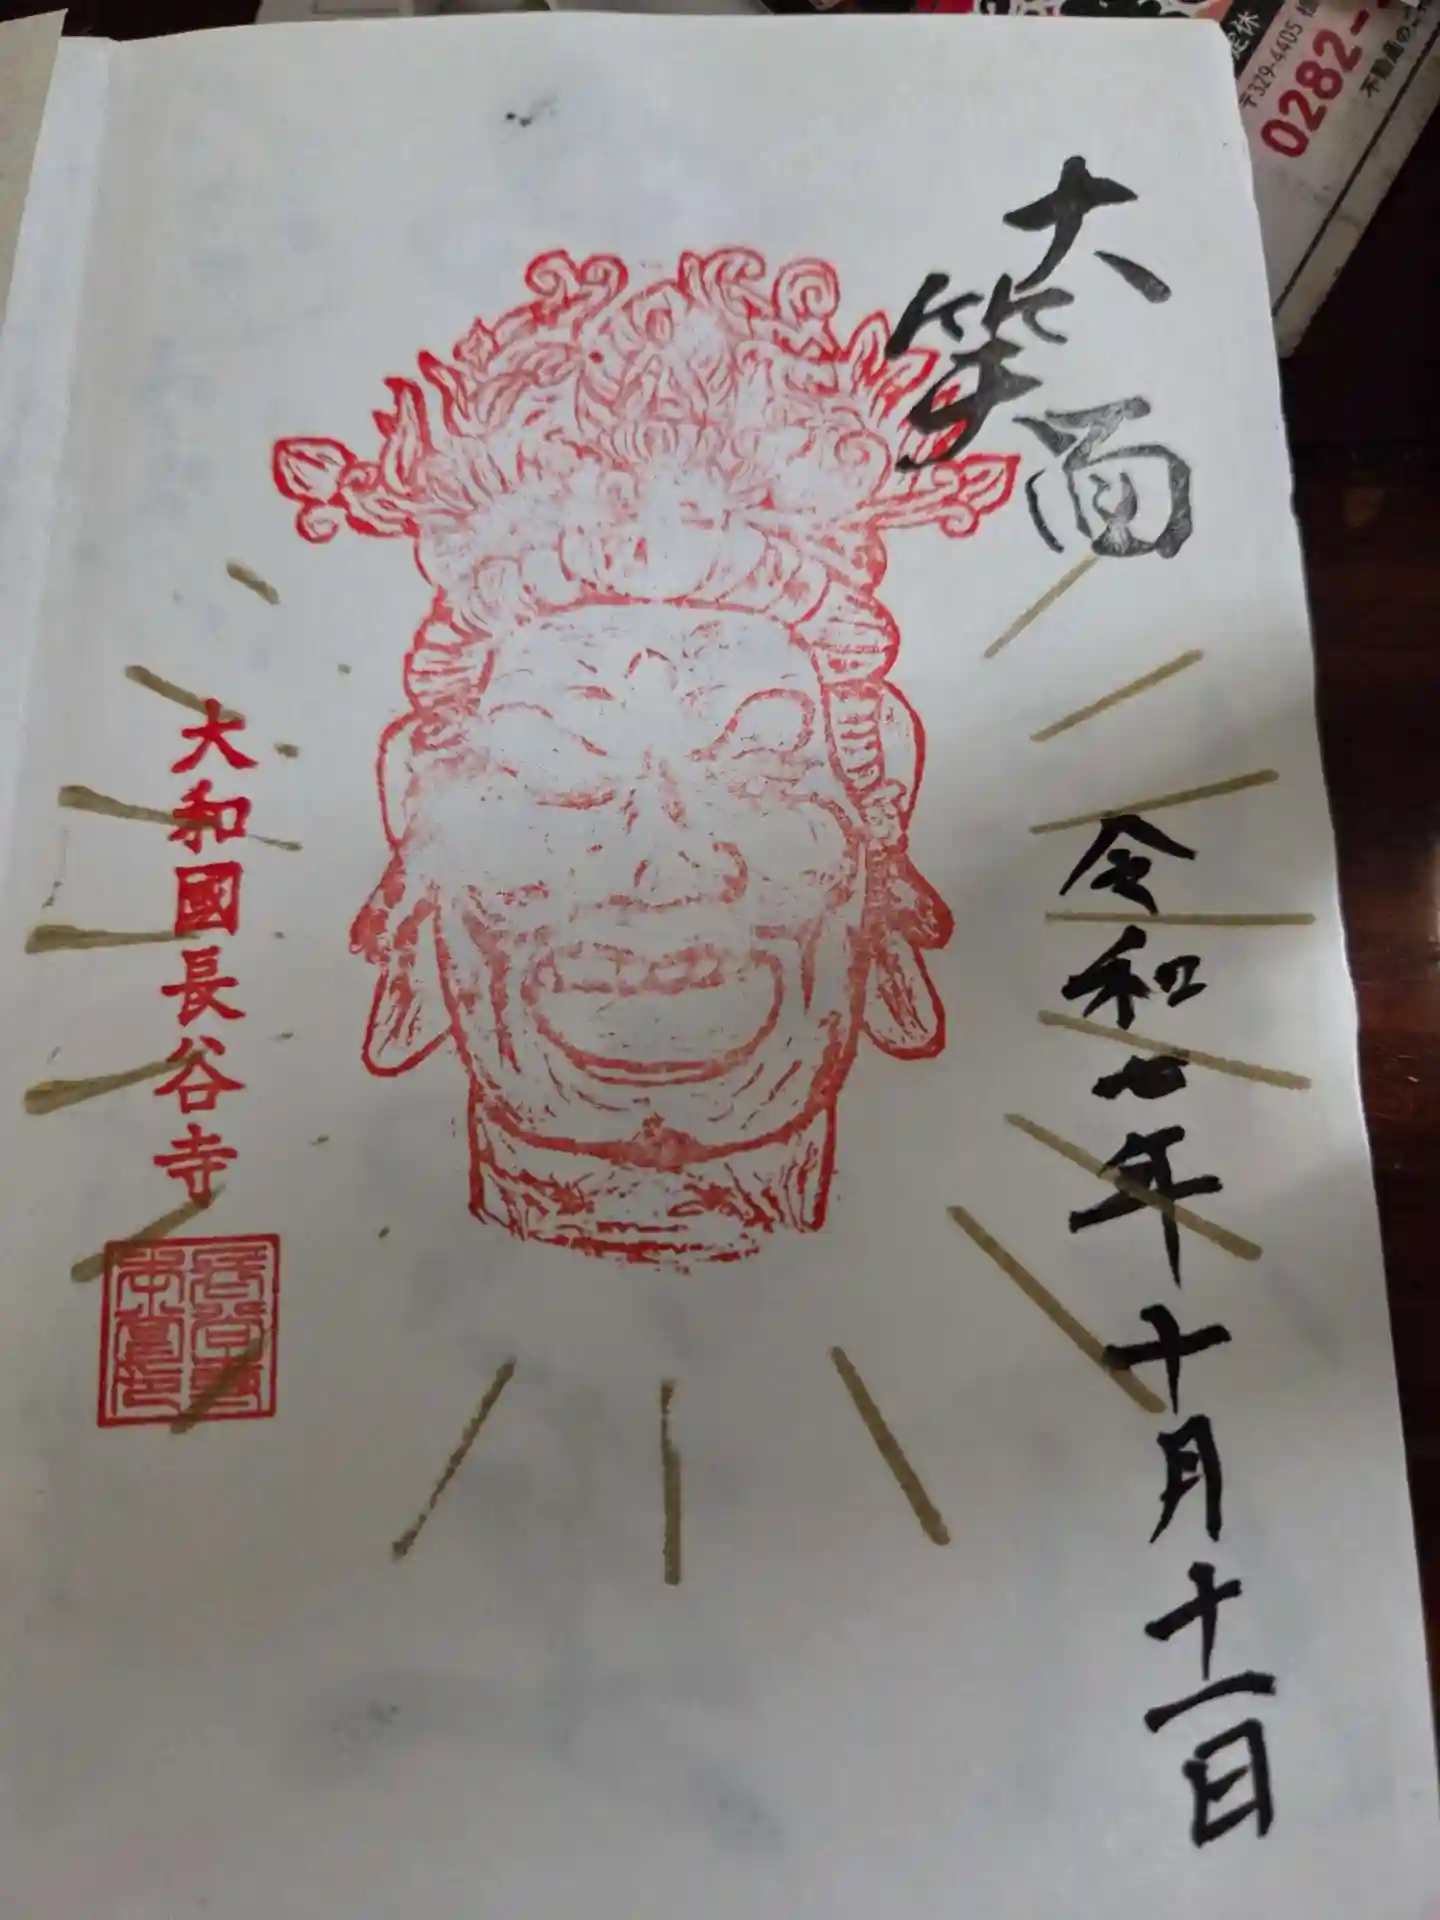 大笑面
令和七年十月十一日
大和國長谷寺
定休
〒329-4405
0282-
不動産のご